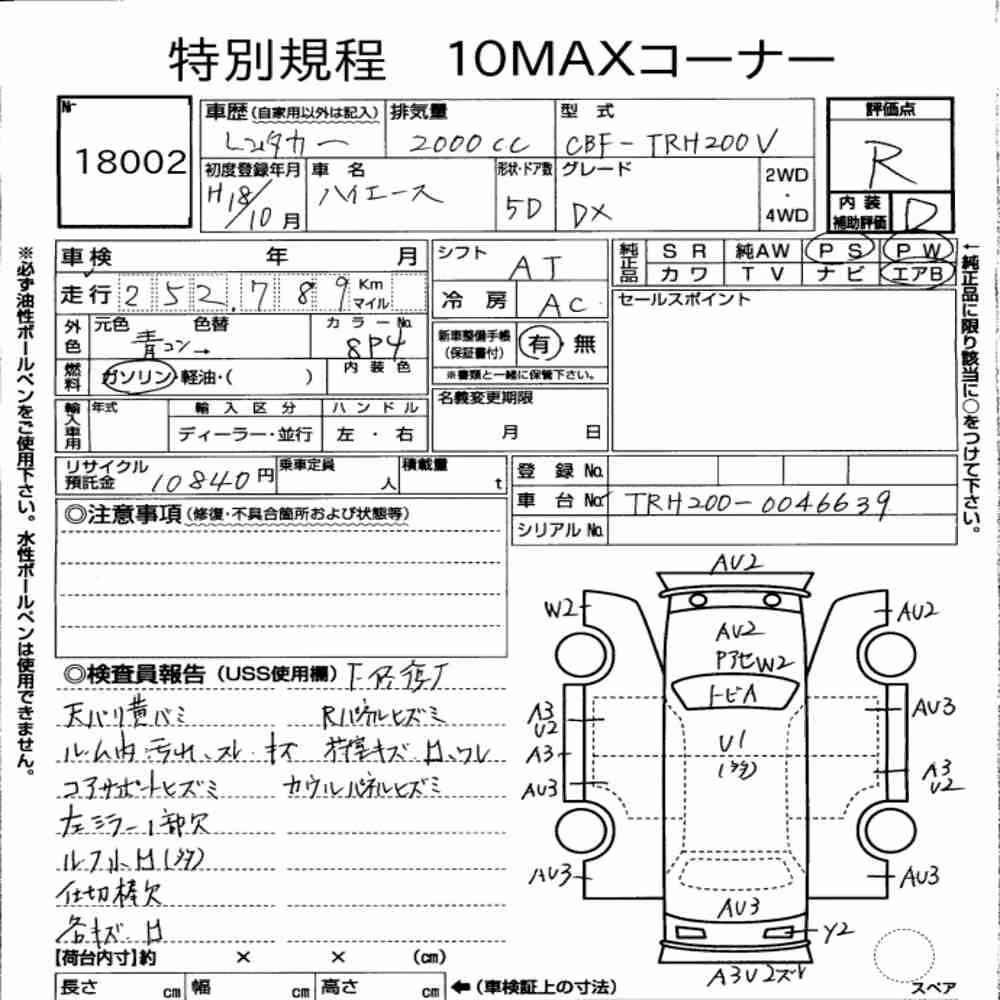 特別規程 10MAXコーナー
№ 18002
車歴 (自家用以外は記入) レンタカー
排気量 2000cc
型式 CBF-TRH200V
評価点 R
初度登録年月 H18/10月
車名 ハイエース
形状・ドア数 5D
グレード DX
2WD・4WD
内装補助評価 D
車検 年 月
走行 252,789 Km マイル
シフト AT
冷房 AC
純正品 SR 純AW PS PW
カワ TV ナビ エアB
セールスポイント
外色 元色 青コン→ 色替
カラーNo. 8P4
新車整備手帳(保証書付) 有・無
※書類と一緒に保管下さい。
燃料 ガソリン・軽油・( )
内装色
名義変更期限 月 日
輸入車用 年式 輸入区分 ハンドル
ディーラー・並行 左・右
リサイクル預託金 10840円
乗車定員 人
積載量 t
登録No.
車台No. TRH200-0046639
シリアルNo.
◎注意事項(修復・不具合箇所および状態等)
◎検査員報告(USS使用欄)
天バリ黄バミ Rパネルヒズミ
ルーム内汚れ、スレ・キズ 荷室キズ・凹、ワレ
コアサポートヒズミ カウルパネルヒズミ
左ミラー1部欠
ルーフ小凹(多多)
仕切棒欠
各キズ・凹
【荷台内寸】約 × × (cm)
長さ cm 幅 cm 高さ cm ←(車検証上の寸法)
※必ず油性ボールペンをご使用下さい。水性ボールペンは使用できません。
←純正品に限り該当に○をつけて下さい。
AU2
W2 AU2
AU2
PアセW2
トビA
A3 U2 AU3
A3 U1 (多多) A3 U2
AU3
AU3 AU3
AU3
Y2
A3U2ズレ
スペア